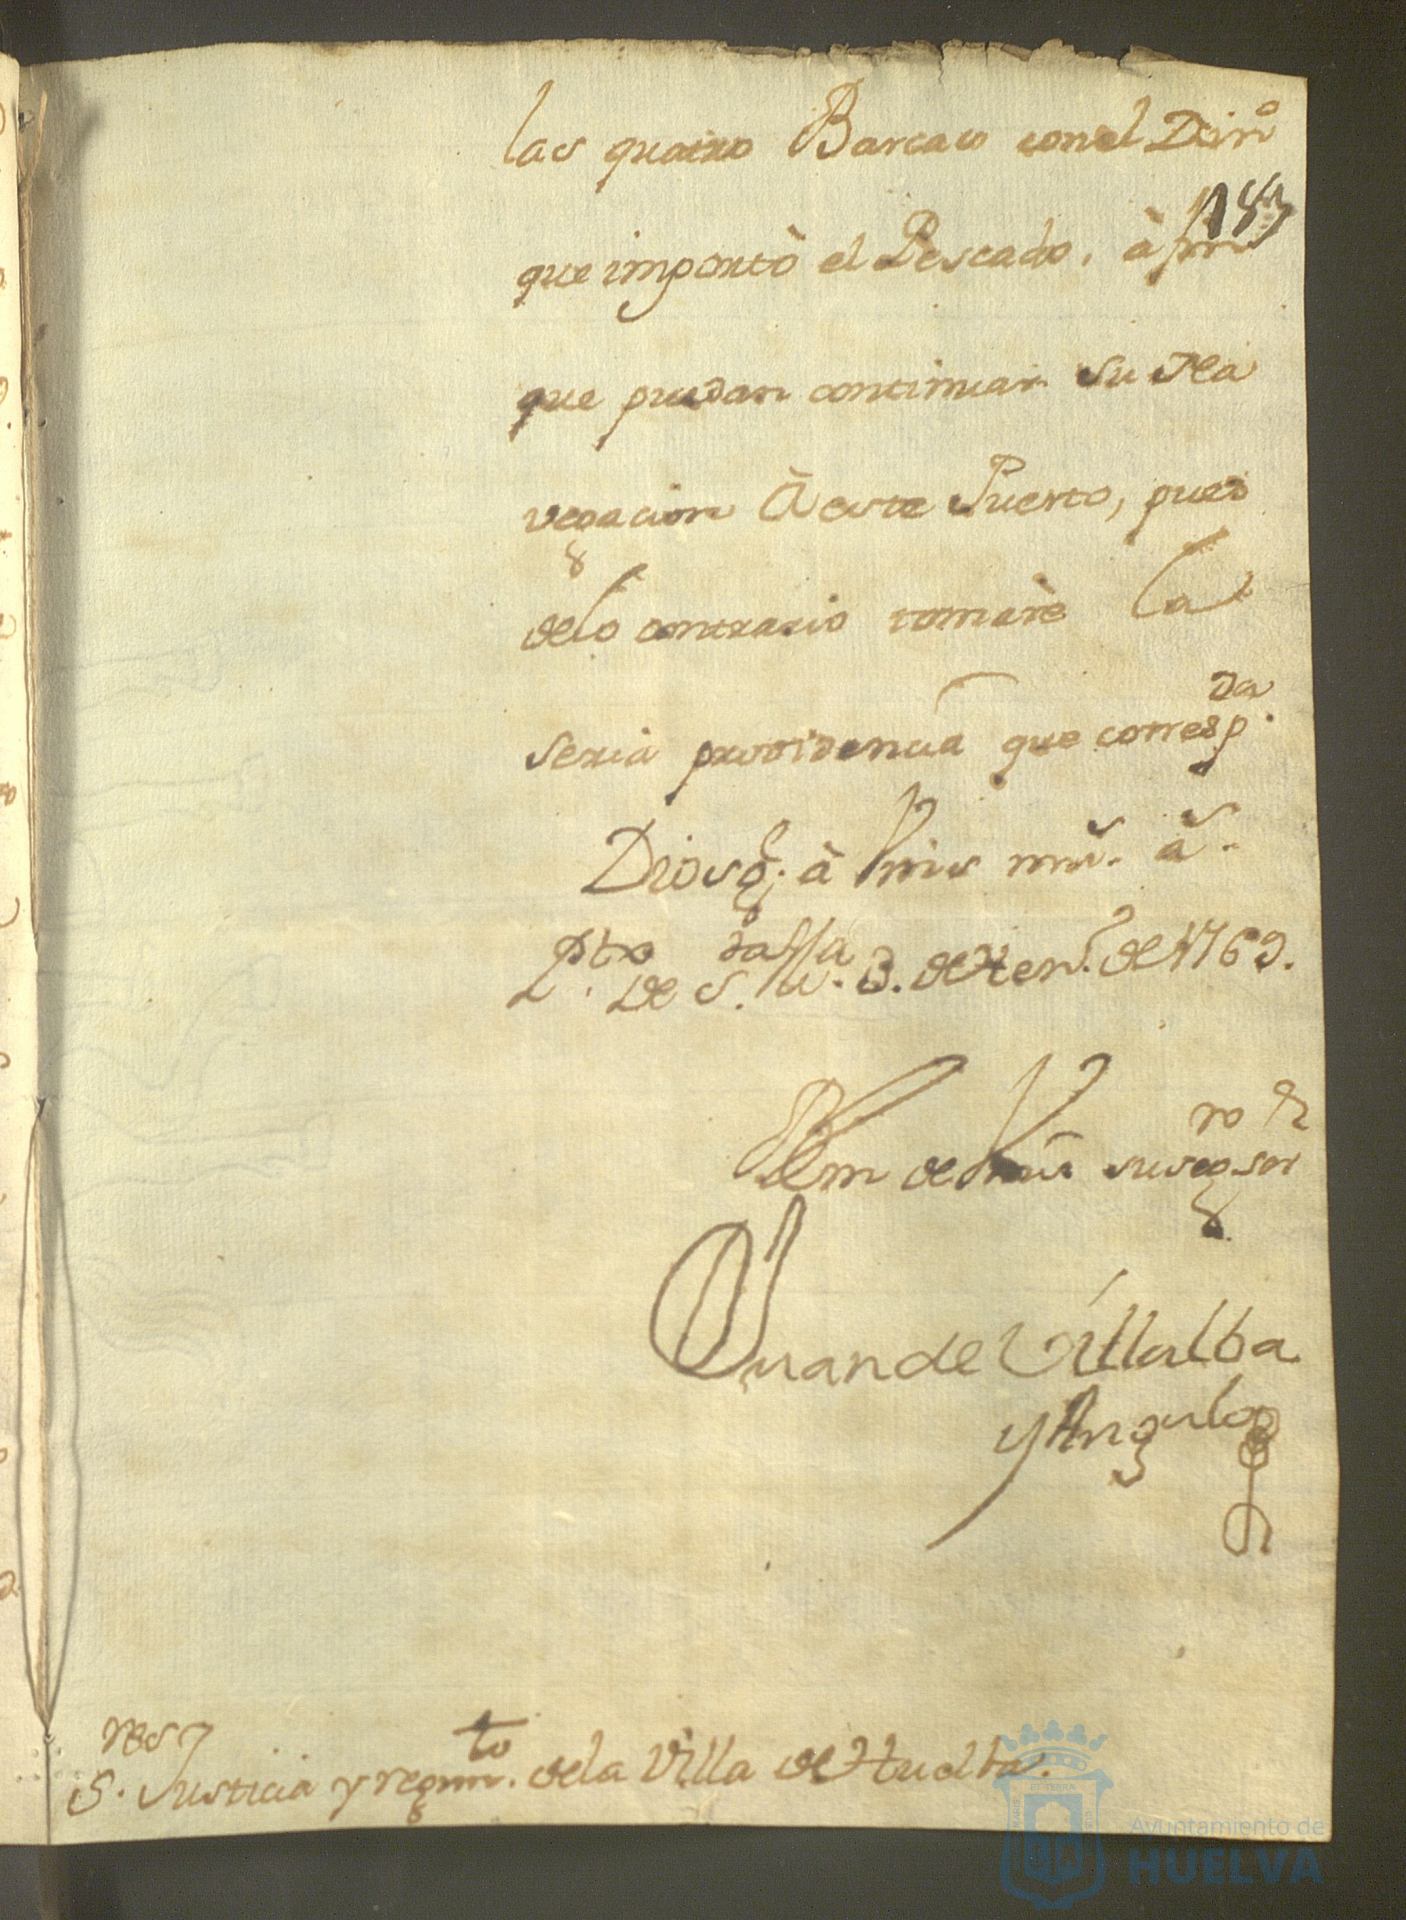 las quatro Barcas con el Dinº
183
que importò el Pescado, à fin
que puedan continuar su Na
vegacion à este Puerto, pues
delo contrario tomarè la
seria providencia que corresp.da
Dios g.e à Vms m.s a.s
Pto de S.ta M.a 3. de Henº. de 1769.
BLm de Vms su seg.ro ser.r
Juan de Villalba
y Angulo
S.res Justicia y regim.to dela Villa de Huelba.
Ayuntamiento de
HUELVA